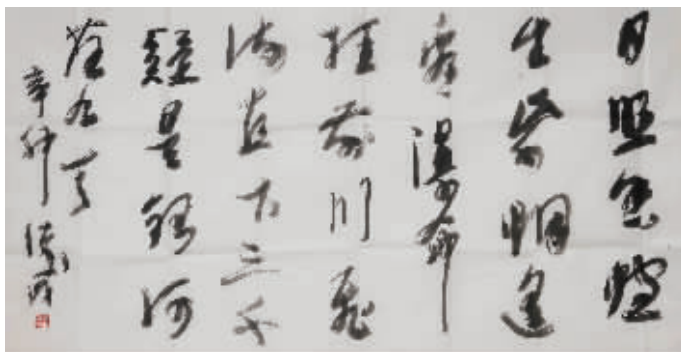 日照香爐
生紫烟遥
看瀑布
挂前川飛
流直下三千
疑是銀河
落九天
辛卯